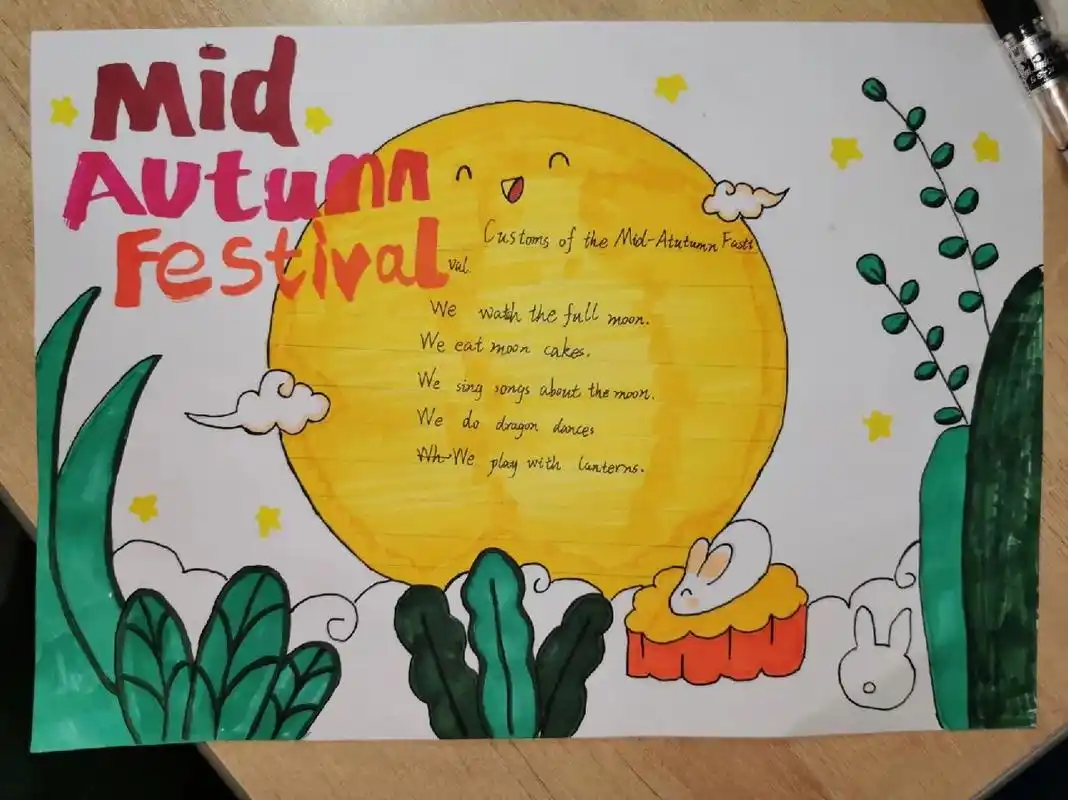 Mid
Autumn
Festival
Customs of the Mid-Atutumn Fasti
val.
We watch the full moon.
We eat moon cakes.
We sing songs about the moon.
We do dragon dances
We play with lanterns.